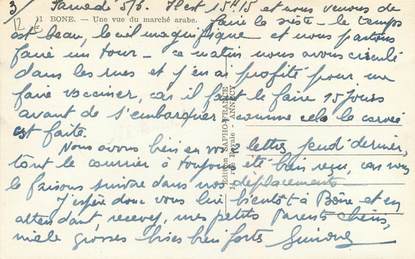 3/ Samedi 5/6. Il est 15 H 15 et nous venons de
11 BONE. — Une vue du marché arabe.
faire la sieste - le temps
est beau, le ciel magnifique et nous partons
faire un tour - ce matin nous avons circulé
dans les rues et j'en ai profité pour me
faire vacciner, car il faut le faire 15 jours
avant de s'embarquer comme cela la corvée
est faite.
Nous avons bien eu votre lettre jeudi dernier,
tout le courrier a toujours été bien reçu car nous
le faisons suivre dans nos déplacements
J'espère donc vous lire bientôt à Bône et en
attendant recevez, mes petits Parents chéris,
mille grosses bises bien fortes